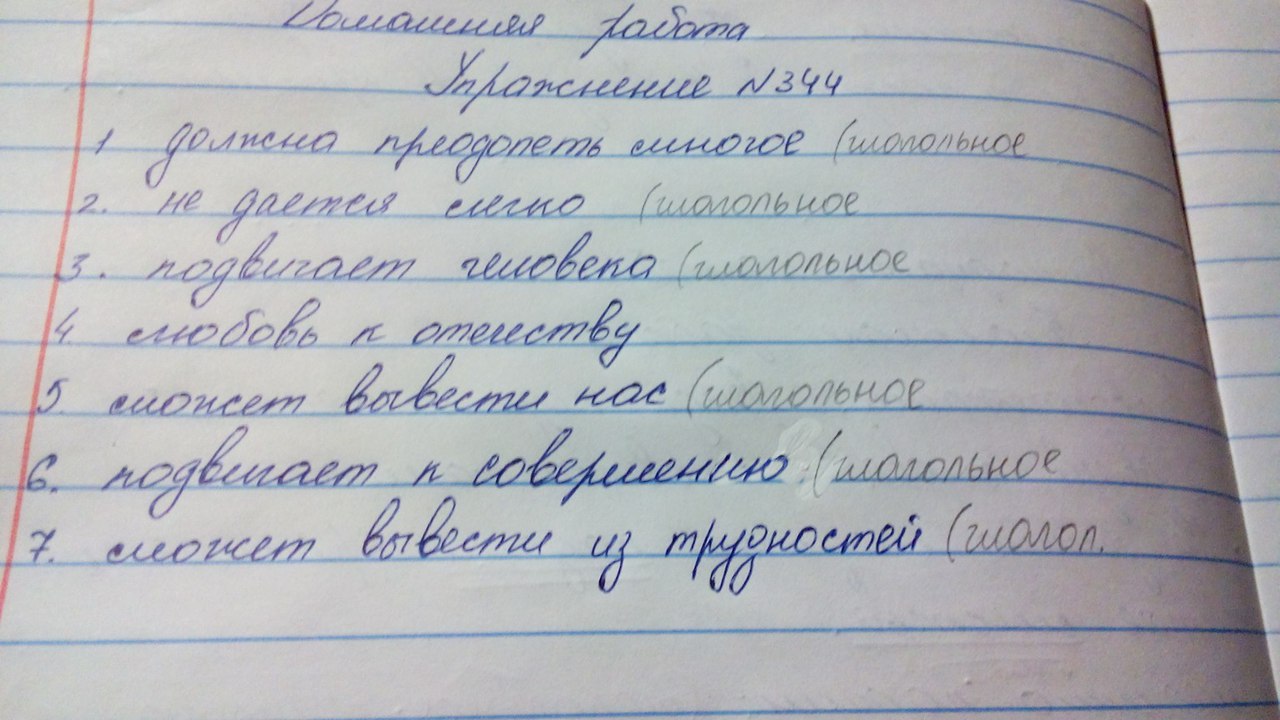 Домашняя работа
Упражнение №344
1 должна преодолеть многое (глагольное
2. не дается легко (глагольное
3. подвигает человека (глагольное
4. любовь к отечеству
5. сможет вывести нас (глагольное
6. подвигает к совершению (глагольное
7. сможет вывести из трудностей (глагол.